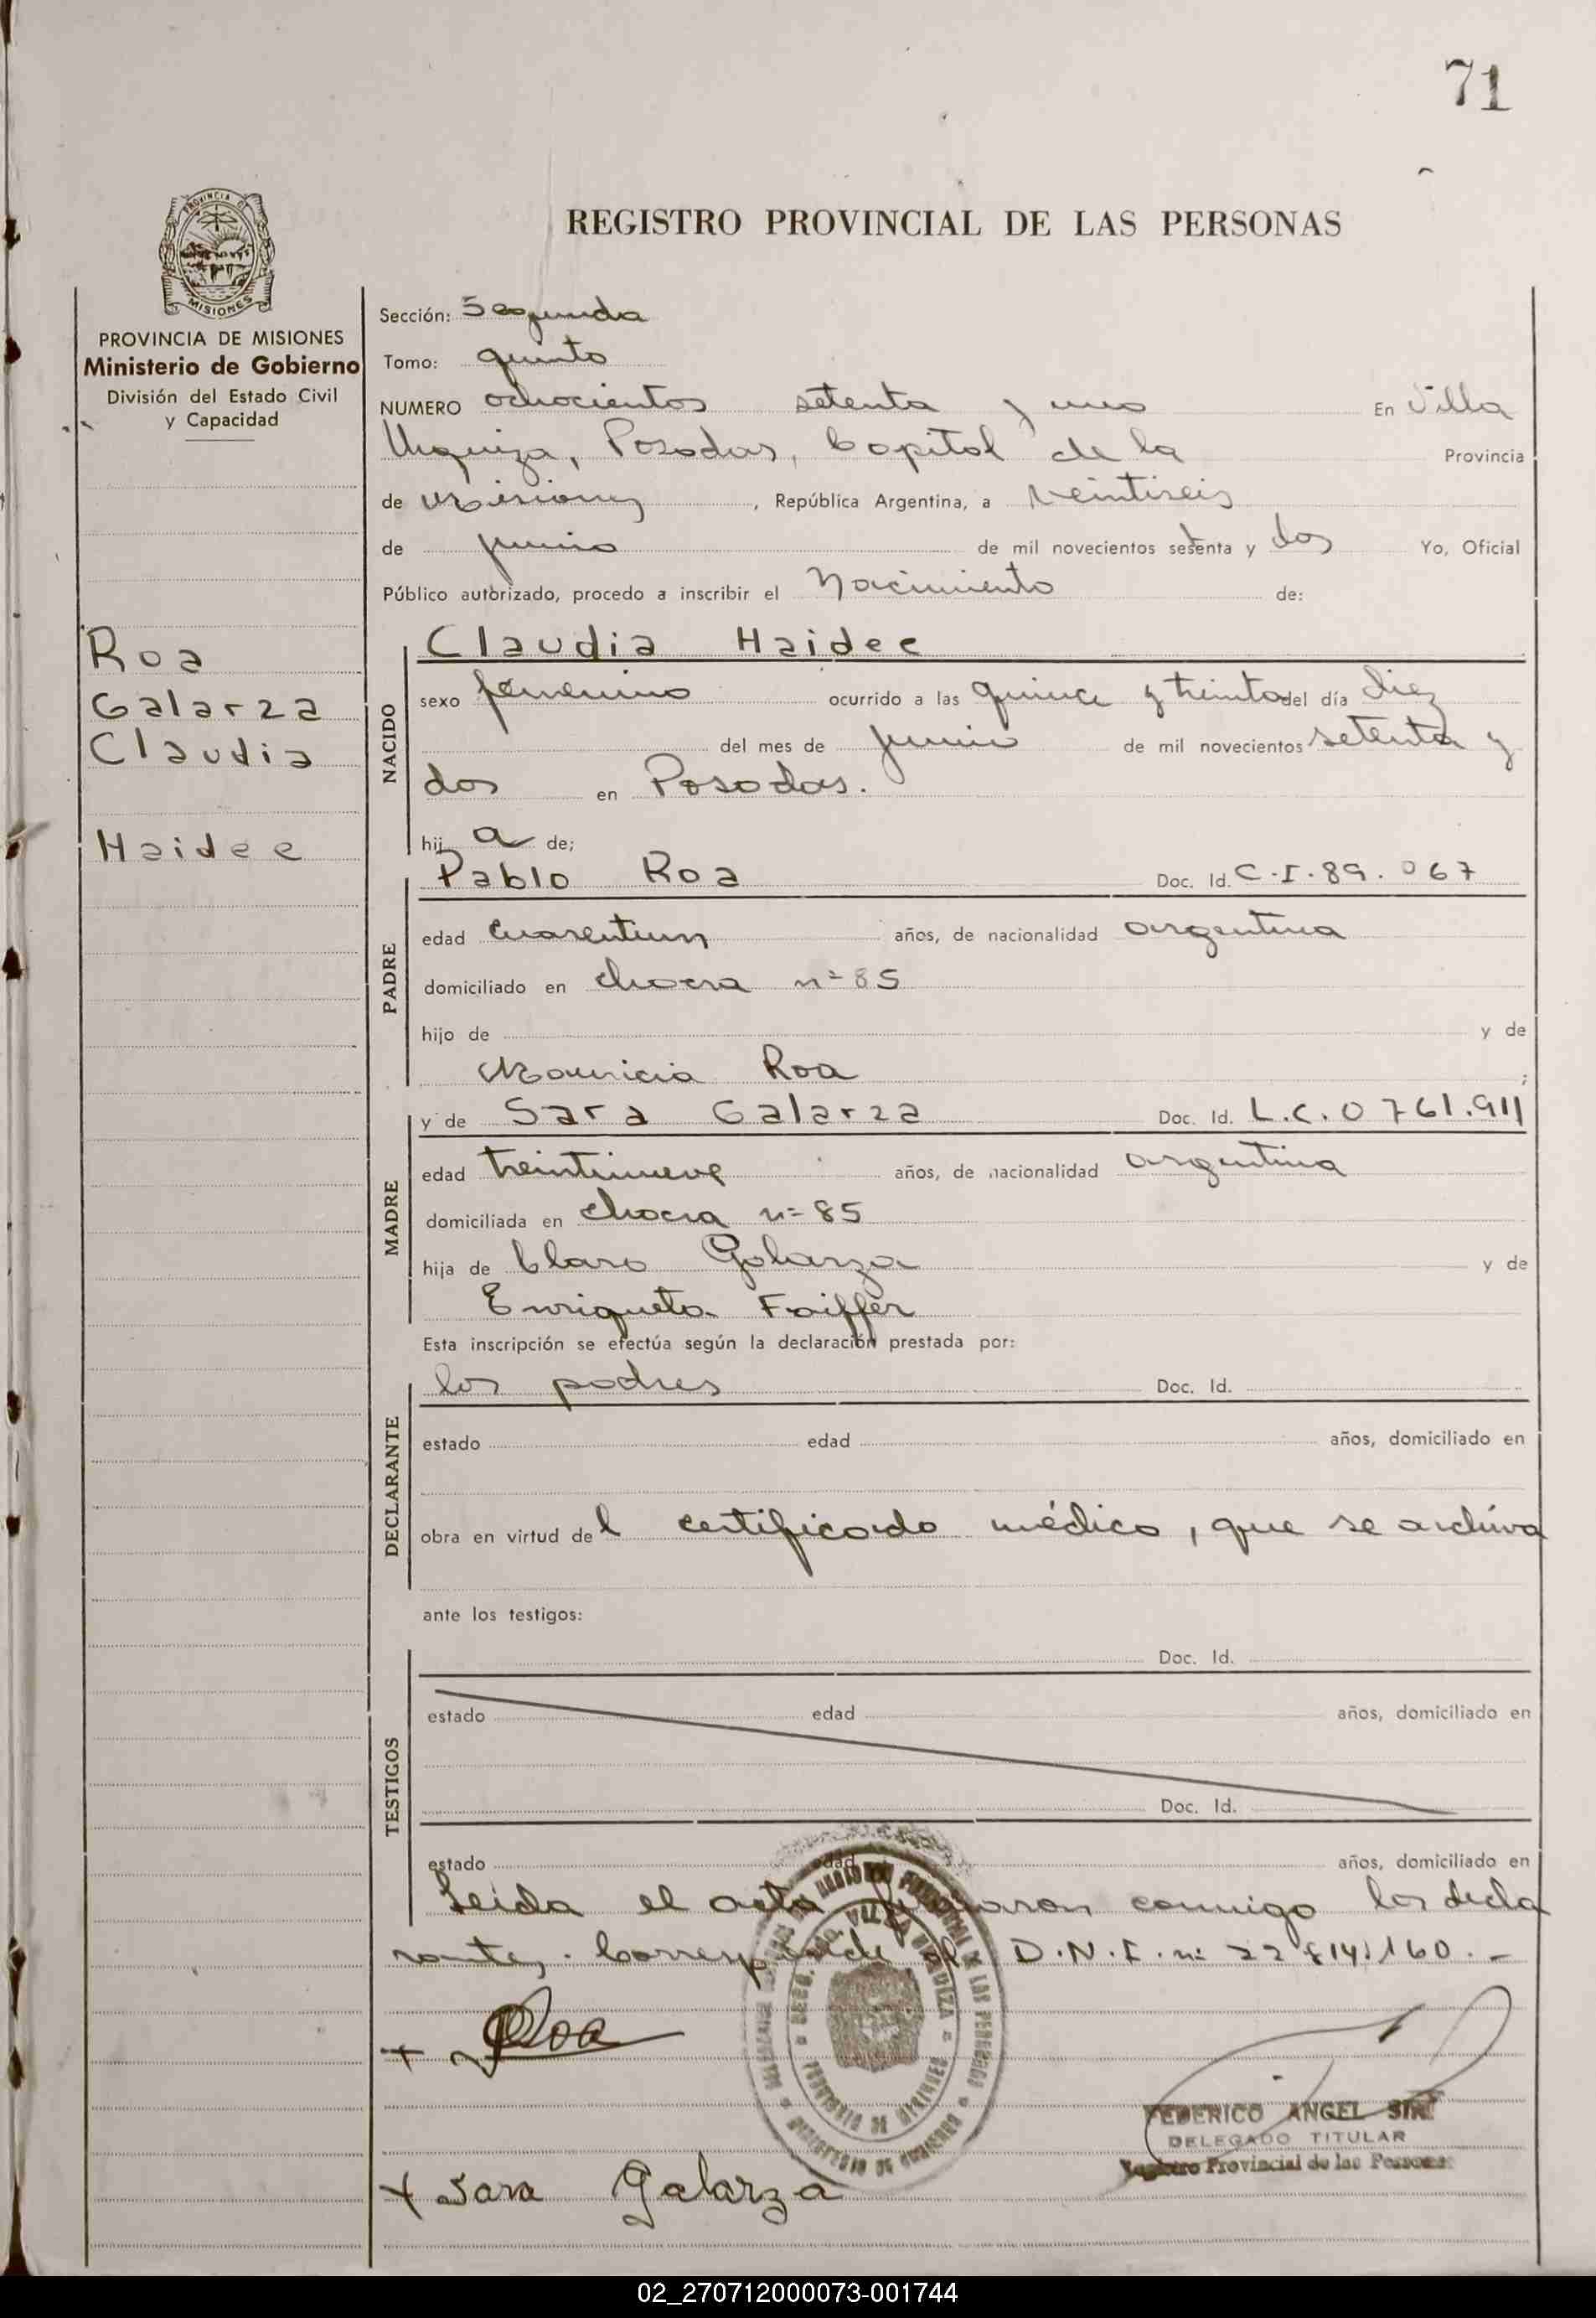 71
PROVINCIA DE
MISIONES
REGISTRO PROVINCIAL DE LAS PERSONAS
PROVINCIA DE MISIONES
Ministerio de Gobierno
División del Estado Civil
y Capacidad
Roa
Galarza
Claudia
Haidee
Sección: Segunda
Tomo: quinto
NUMERO ochocientos setenta y uno En Villa
Urquiza, Posadas, Capital de la Provincia
de Misiones, República Argentina, a veintiseis
de junio de mil novecientos setenta y dos Yo, Oficial
Público autorizado, procedo a inscribir el Nacimiento de:
NACIDO
Claudia Haidee
sexo femenino ocurrido a las quince y treinta del día diez
del mes de junio de mil novecientos setenta y
dos en Posadas.
hija de;
PADRE
Pablo Roa Doc. Id. C.I. 89.067
edad cuarentiun años, de nacionalidad argentina
domiciliado en chacra nº 85
hijo de y de
Mauricia Roa ;
MADRE
y de Sara Galarza Doc. Id. L.C. 0761.911
edad treintinueve años, de nacionalidad argentina
domiciliada en chacra nº 85
hija de Claro Galarza y de
Enriqueta Faiffer
Esta inscripción se efectúa según la declaración prestada por:
DECLARANTE
los padres Doc. Id.
estado edad años, domiciliado en
obra en virtud del certificado médico, que se archiva
ante los testigos:
TESTIGOS
Doc. Id.
estado edad años, domiciliado en
Doc. Id.
estado edad años, domiciliado en
Leida el acta firmaron conmigo los decla
rantes. Corresponde al D.N.I. nº
+ Roa
FEDERICO ANGEL
DELEGADO TITULAR
Registro Provincial de las Personas
+ Sara Galarza
02_270712000073-001744